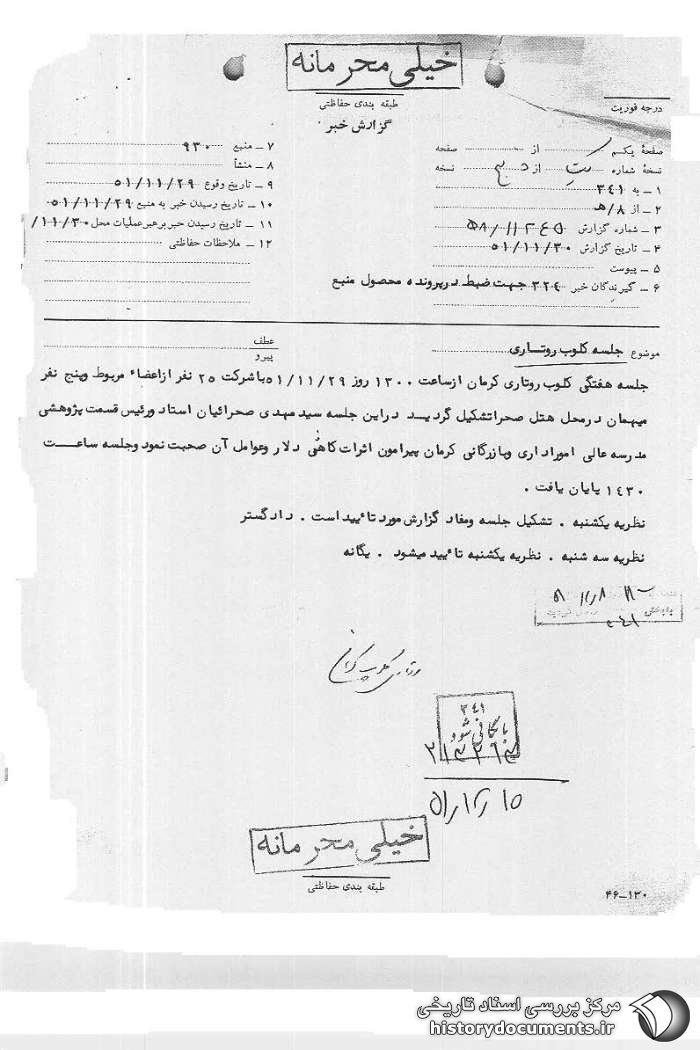 خیلی محرمانه
طبقه بندی حفاظتی
گزارش خبر
درجه فوریت
صفحهٔ یکم از صفحه
نسخهٔ شماره از نسخه
۱ ـ به ۳۴۱
۲ ـ از ۸/هـ
۳ ـ شماره گزارش ۵۸/۱۱۲۴۵
۴ ـ تاریخ گزارش ۵۱/۱۱/۳۰
۵ ـ پیوست
۶ ـ گیرندگان خبر ۳۲۴ جهت ضبط در پرونده محصول منبع
۷ ـ منبع ۹۳۰
۸ ـ منشأ
۹ ـ تاریخ وقوع ۵۱/۱۱/۲۹
۱۰ ـ تاریخ رسیدن خبر به منبع ۵۱/۱۱/۲۹
۱۱ ـ تاریخ رسیدن خبر برهبر عملیات محل ۱۱/۳۰/
۱۲ ـ ملاحظات حفاظتی
موضوع جلسه کلوب روتاری
عطف
پیرو
جلسه هفتگی کلوب روتاری کرمان ازساعت ۱۳۰۰ روز ۵۱/۱۱/۲۹ باشرکت ۲۵ نفر ازاعضاء مربوط وپنج نفر
میهمان درمحل هتل صحراتشکیل گردید دراین جلسه سید مهدی صحرائیان استاد ورئیس قسمت پژوهشی
مدرسه عالی اموراداری وبازرگانی کرمان پیرامون اثرات کاهش دلار وعوامل آن صحبت نمود وجلسه ساعت
۱۴۳۰ پایان یافت .
نظریه یکشنبه . تشکیل جلسه ومفاد گزارش مورد تائید است . دادگستر
نظریه سه شنبه . نظریه یکشنبه تائید میشود . یگانه
روتاری کلوپ کرمان
۳۴۱
بایگانی شود
۵۱/۱۲/۱۵
خیلی محرمانه
طبقه بندی حفاظتی
۴۶-۱۳۰
مرکز بررسی اسناد تاریخی
historydocuments.ir